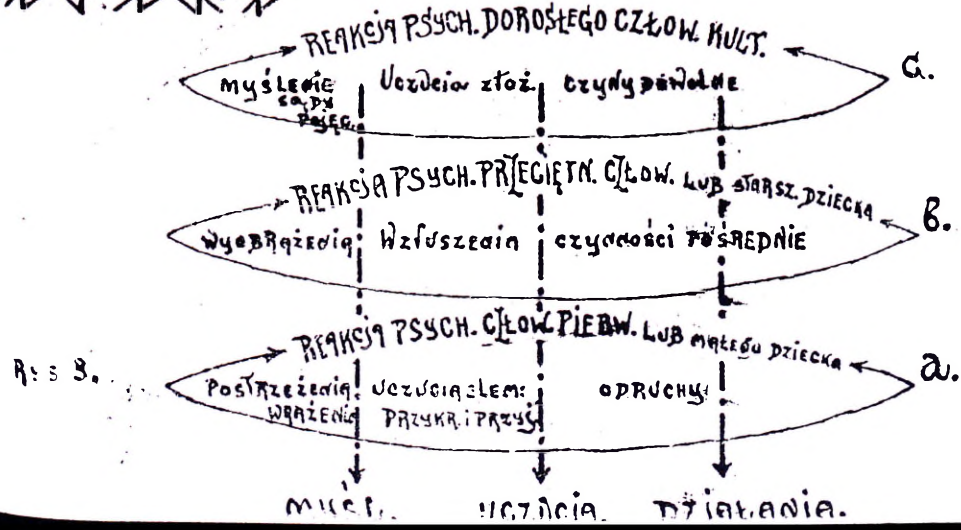 REAKCJA PSYCH. DOROSŁEGO CZŁOW. KULT.
c.
MYŚLENIE Uczucia złoż. czyny DOWOLNE
SĄDY
POJĘC.
REAKCJA PSYCH. PRZECIĘTN. CZŁOW. LUB STARSZ. DZIECKA
b.
WYOBRAŻENIA Wzruszenia czynności POŚREDNIE
REAKCJA PSYCH. CZŁOW. PIERW. LUB MAŁEGO DZIECKA
Rys 3.
a.
POSTRZEŻENIA UCZUCIA ELEM: ODRUCHY
WRAŻENIA PRZYKR. i PRZYJ.
MYŚL. UCZUCIA. DZIAŁANIA.